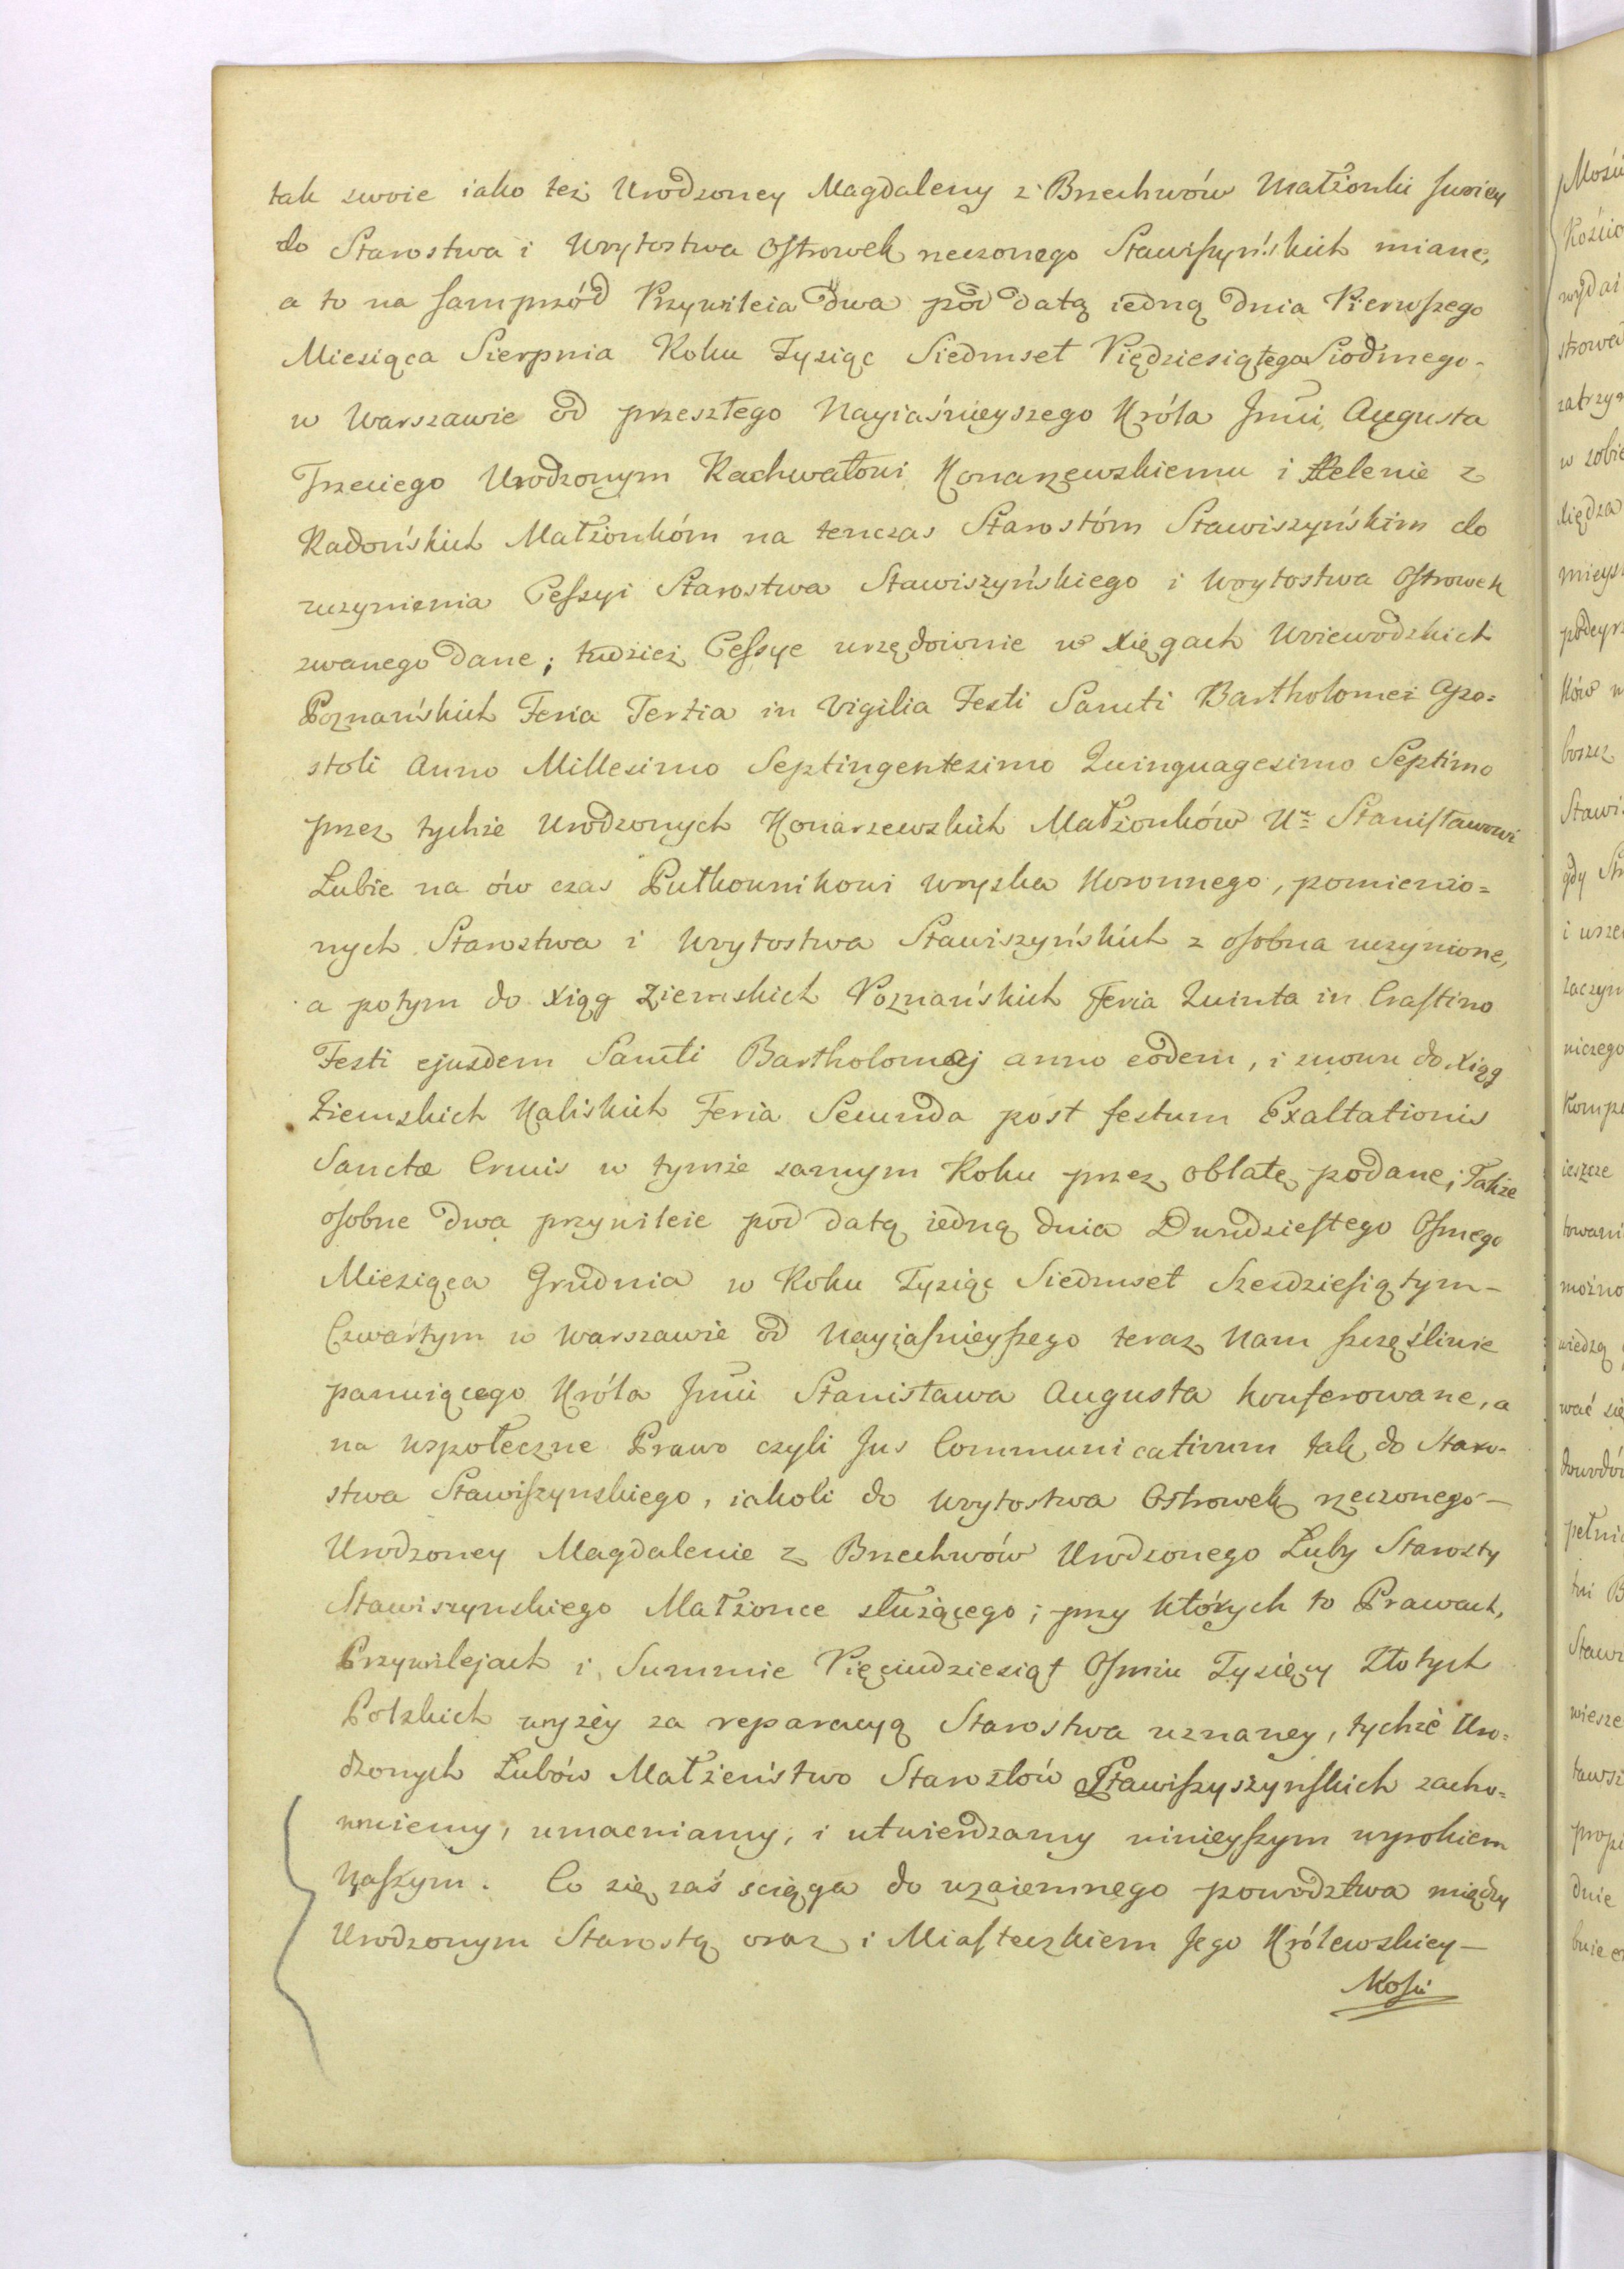 tak swoie iako też Urodzoney Magdaleny z Brzechwów Małżonki swoiey
do Starostwa i Wóytostwa Ostrowek rzeczonego Stawiszyńskich miane,
a to na samprzód Przywileia dwa pod datą iedną dnia Pierwszego
Miesiąca Sierpnia Roku Tysiąc Siedmset Piędziesiątego Siodmego-
w Warszawie od przeszłego Nayiaśnieyszego Króla Jmci Augusta
Trzeciego Urodzonym Rachwałowi Konarzewskiemu i Helenie z
Radońskich Małżonkóm na tenczas Starostóm Stawiszyńskim do
uczynienia Cessyi Starostwa Stawiszyńskiego i Wóytostwa Ostrowek
zwanego dane; tudzież Cessye urzędownie w Xięgach Woiewodzkich
Poznańskich Feria Tertia in Vigilia Festi Sancti Bartholomei Apo=
stoli Anno Millesimo Septingentesimo Quinquagesimo Septimo
przez tychże Urodzonych Konarzewskich Małżonków Ur= Stanisławowi
Łubie na ów czas Pułkownikowi Woyska Koronnego, pomienio=
nych Starostwa i Wóytostwa Stawiszyńskich z osobna uczynione,
a potym do Xiąg Ziemskich Poznańskich Feria Quinta in Crastino
Festi ejusdem Sancti Bartholomæj anno eodem, i znowu do Xiąg
Ziemskich Kaliskich Feria Secunda post festum Exaltationis
Sanctæ Crucis w tymże samym Roku przez oblatę podane; Także
osobne dwa przywileie pod datą iedną dnia Dwudziestego Osmego
Miesiąca Grudnia w Roku Tysiąc Siedmset Sześdziesiątym-
Czwartym w Warszawie od Nayiaśnieyszego teraz Nam szczęśliwie
panuiącego Króla Jmci Stanisława Augusta konferowane, a
na wspołeczne Prawo czyli Jus Communicativum tak do Staro-
stwa Stawiszynskiego, iakoli do Wóytostwa Ostrowek rzeczonego-
Urodzoney Magdalenie z Brzechwów Urodzonego Łuby Starosty
Stawiszynskiego Małżonce służącego; przy których to Prawach,
Przywilejach i Summie Pięciudziesiąt Osmiu Tysięcy Złotych
Polskich wyżéy za reparacyą Starostwa uznaney, tychże Uro=
dzonych Łubów Małżeństwo Starostów Stawiszyszyńskich zacho=
wuiemy, umacniamy, i utwierdzamy ninieyszym wyrokiem
Naszym. Co się zaś sciąga do wzaiemnego powodztwa między
Urodzonym Starostą oraz i Miasteczkiem Jego Królewskiey-
Mości